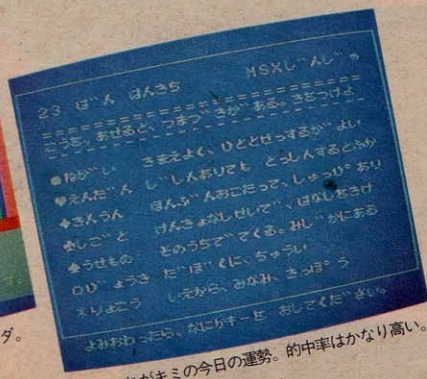 23 ばん はんきち MSXじんじゃ
こうを、あせると、つまづきがある。きをつけよ
●ねがい さまえよく、ひととせっするがよい
♥えんだん じしんありても とっしんするとふか
♦きんうん ほんぶんおこたって、しゅっぴあり
♣しごと けんきょなしせいで、はなしをきけ
♠うせもの そのうちでてくる。みじかにある
びょうき だぼくに、ちゅうい
りょこう しえから、みなみ、きっぽう
よみおわったら、なにかキーを おしてください。
ダ。
がキミの今日の運勢。的中率はかなり高い。